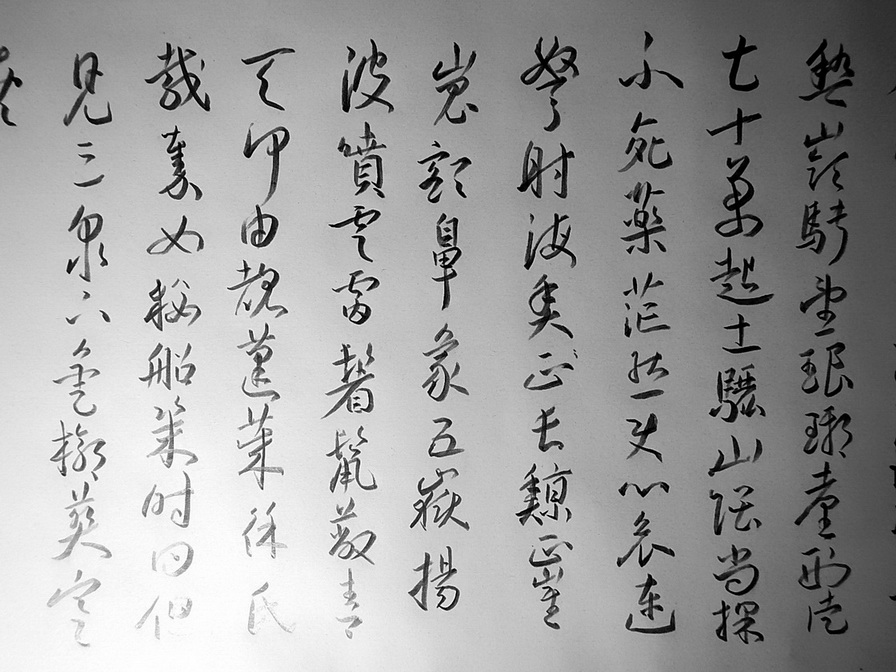 稽嶺騁望琅琊臺刑徒
七十萬起土驪山隈尚採
不死藥茫然使心哀連
弩射海魚正長鯨正崔
嵬額鼻象五嶽揚
波噴雲雷鬐鬣蔽青
天何由覩蓬萊徐氏
載秦女樓船幾時回但
見三泉下金棺葬寒